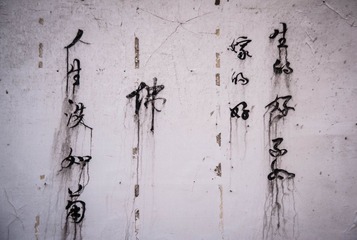 生的好不如
嫁的好
佛
人生淡如菊